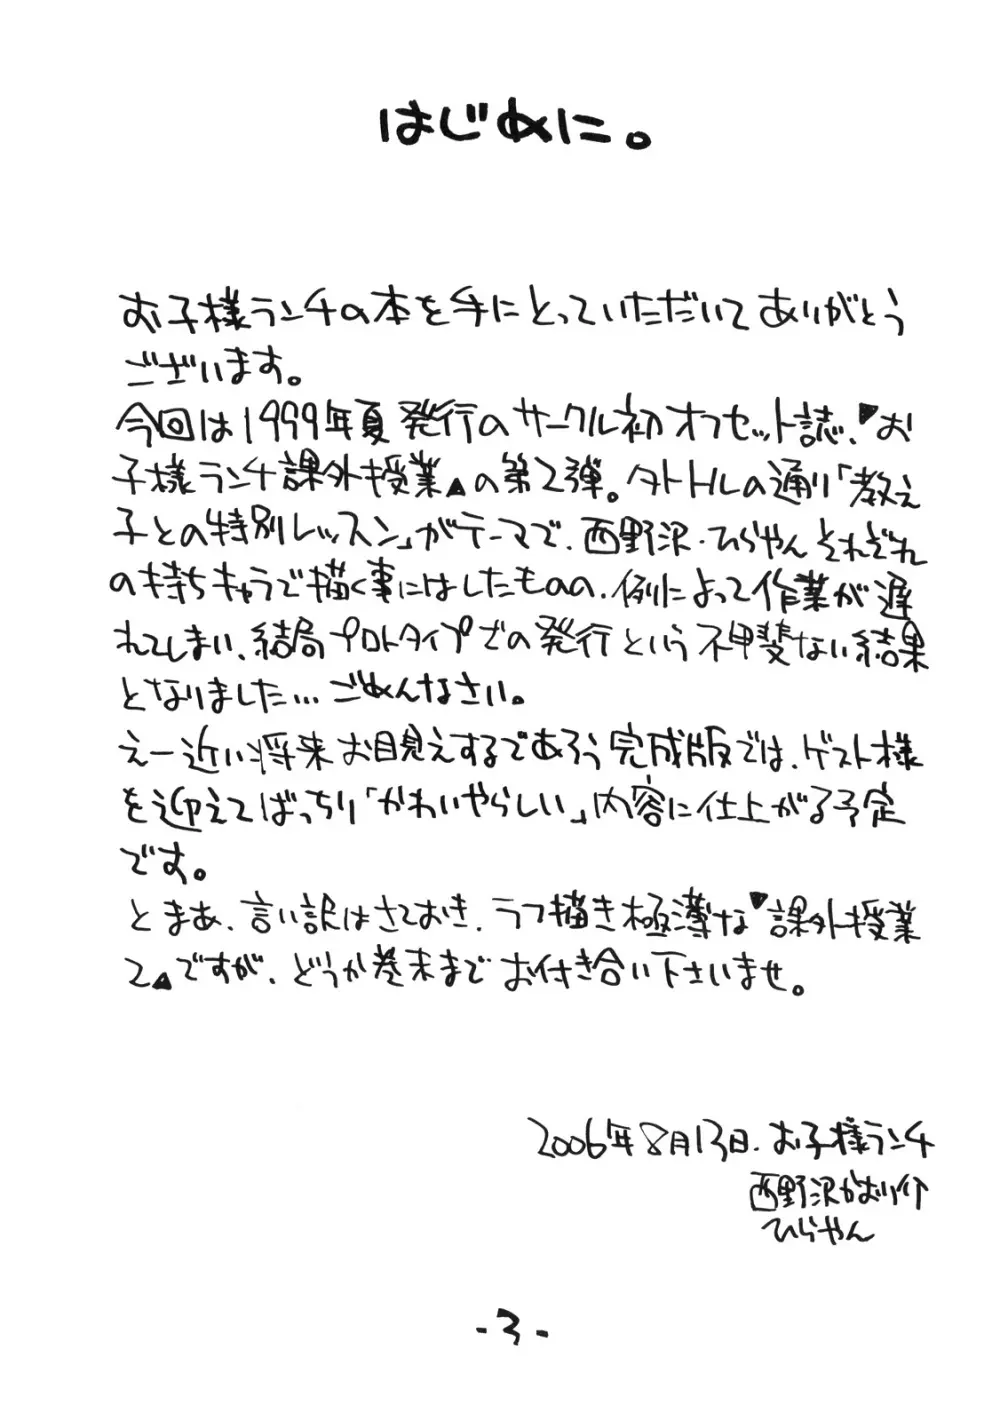 はじめに。
お子様ランチの本を手にとっていただいてありがとう
ございます。
今回は1999年夏発行のサークル初オフセット誌、『お
子様ランチ課外授業』の第2弾。タイトルの通り「教え
子との特別レッスン」がテーマで、西野沢・ひらやんそれぞれ
の持ちキャラで描く事にはしたものの、例によって作業が遅
れてしまい、結局プロトタイプでの発行という不甲斐ない結果
となりました…ごめんなさい。
えー近い将来お目見えするであろう完成版では、ゲスト様
を迎えてばっちり「かわいやらしい」内容に仕上がる予定
です。
とまあ、言い訳はさておき、ラフ描き極薄な『課外授業
2』ですが、どうか巻末までお付き合い下さいませ。
2006年8月13日、お子様ランチ
西野沢かおり介
ひらやん
-3-